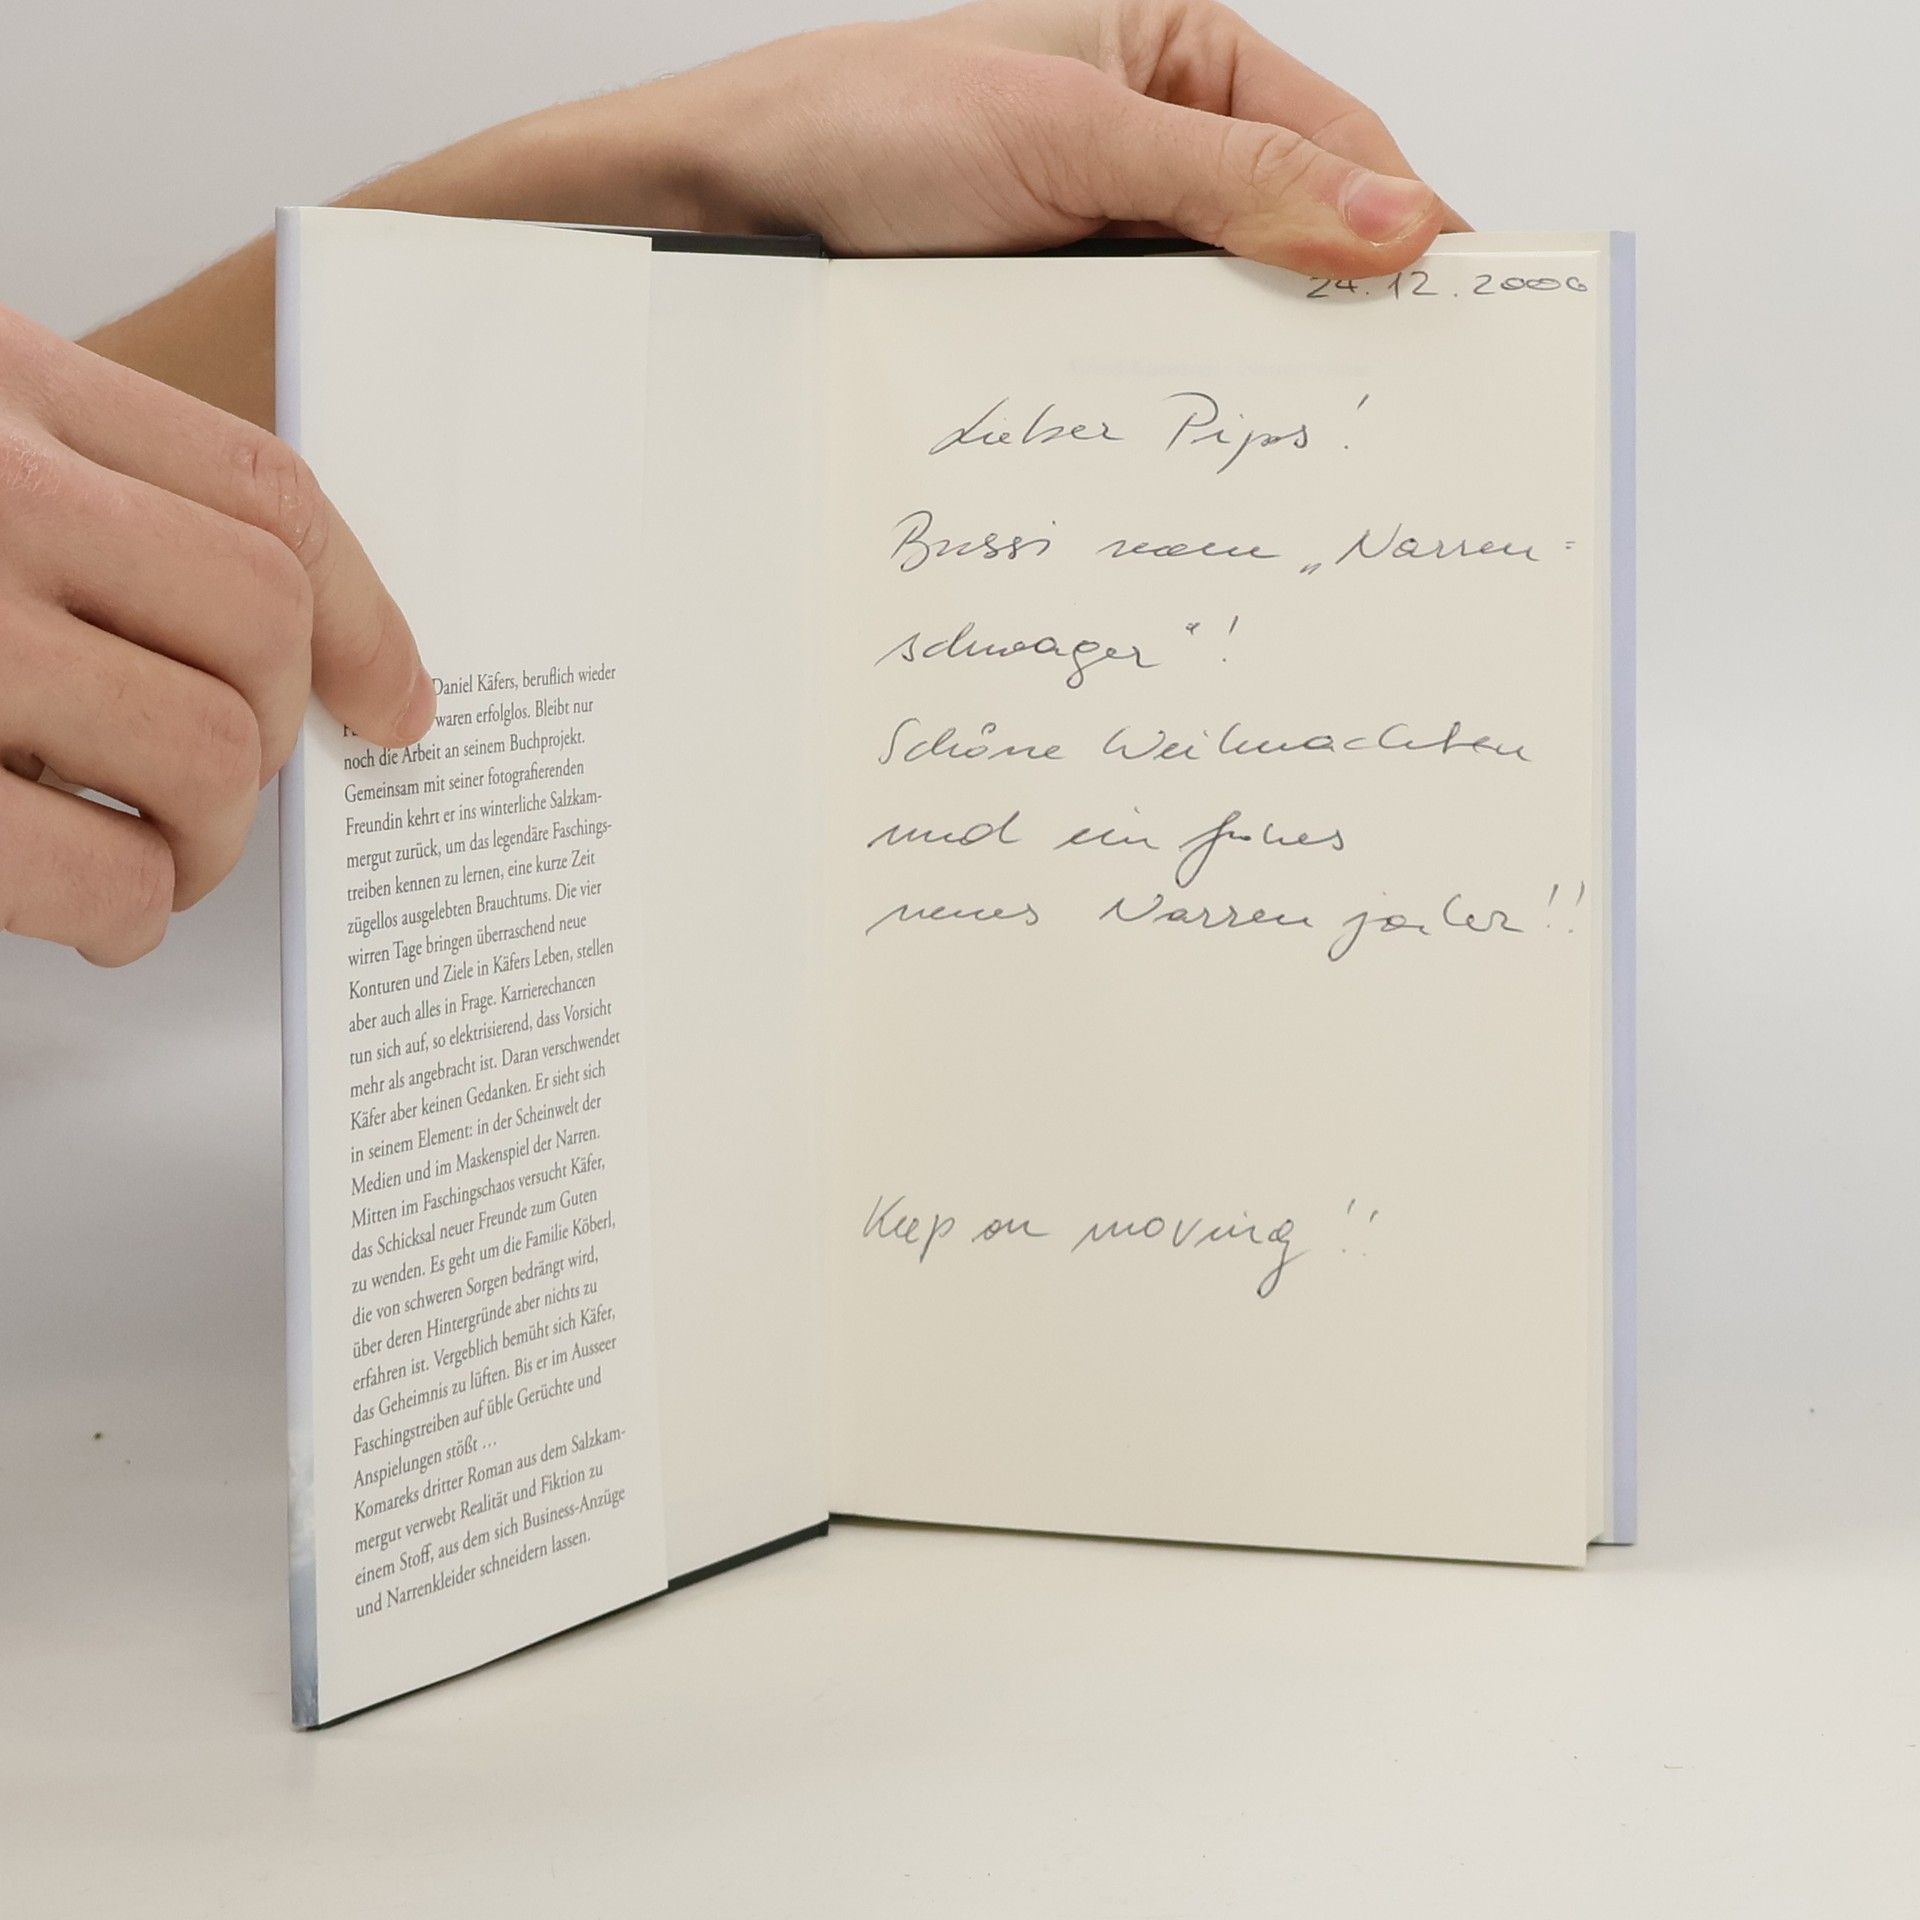 Daniel Käfers, beruflich wieder
waren erfolglos. Bleibt nur
noch die Arbeit an seinem Buchprojekt.
Gemeinsam mit seiner fotografierenden
Freundin kehrt er ins winterliche Salzkam-
mergut zurück, um das legendäre Faschings-
treiben kennen zu lernen, eine kurze Zeit
zügellos ausgelebten Brauchtums. Die vier
wirren Tage bringen überraschend neue
Konturen und Ziele in Käfers Leben, stellen
aber auch alles in Frage. Karrierechancen
tun sich auf, so elektrisierend, dass Vorsicht
mehr als angebracht ist. Daran verschwendet
Käfer aber keinen Gedanken. Er sieht sich
in seinem Element: in der Scheinwelt der
Medien und im Maskenspiel der Narren.
Mitten im Faschingschaos versucht Käfer,
das Schicksal neuer Freunde zum Guten
zu wenden. Es geht um die Familie Köberl,
die von schweren Sorgen bedrängt wird,
über deren Hintergründe aber nichts zu
erfahren ist. Vergeblich bemüht sich Käfer,
das Geheimnis zu lüften. Bis er im Ausseer
Faschingstreiben auf üble Gerüchte und
Anspielungen stößt ...
Komareks dritter Roman aus dem Salzkam-
mergut verwebt Realität und Fiktion zu
einem Stoff, aus dem sich Business-Anzüge
und Narrenkleider schneidern lassen.
24.12.2006
Lieber Pips!
Bussi vom „Narren=
schwager"!
Schöne Weihnachten
und ein frohes
neues Narrenjahr!!
Keep on moving!!